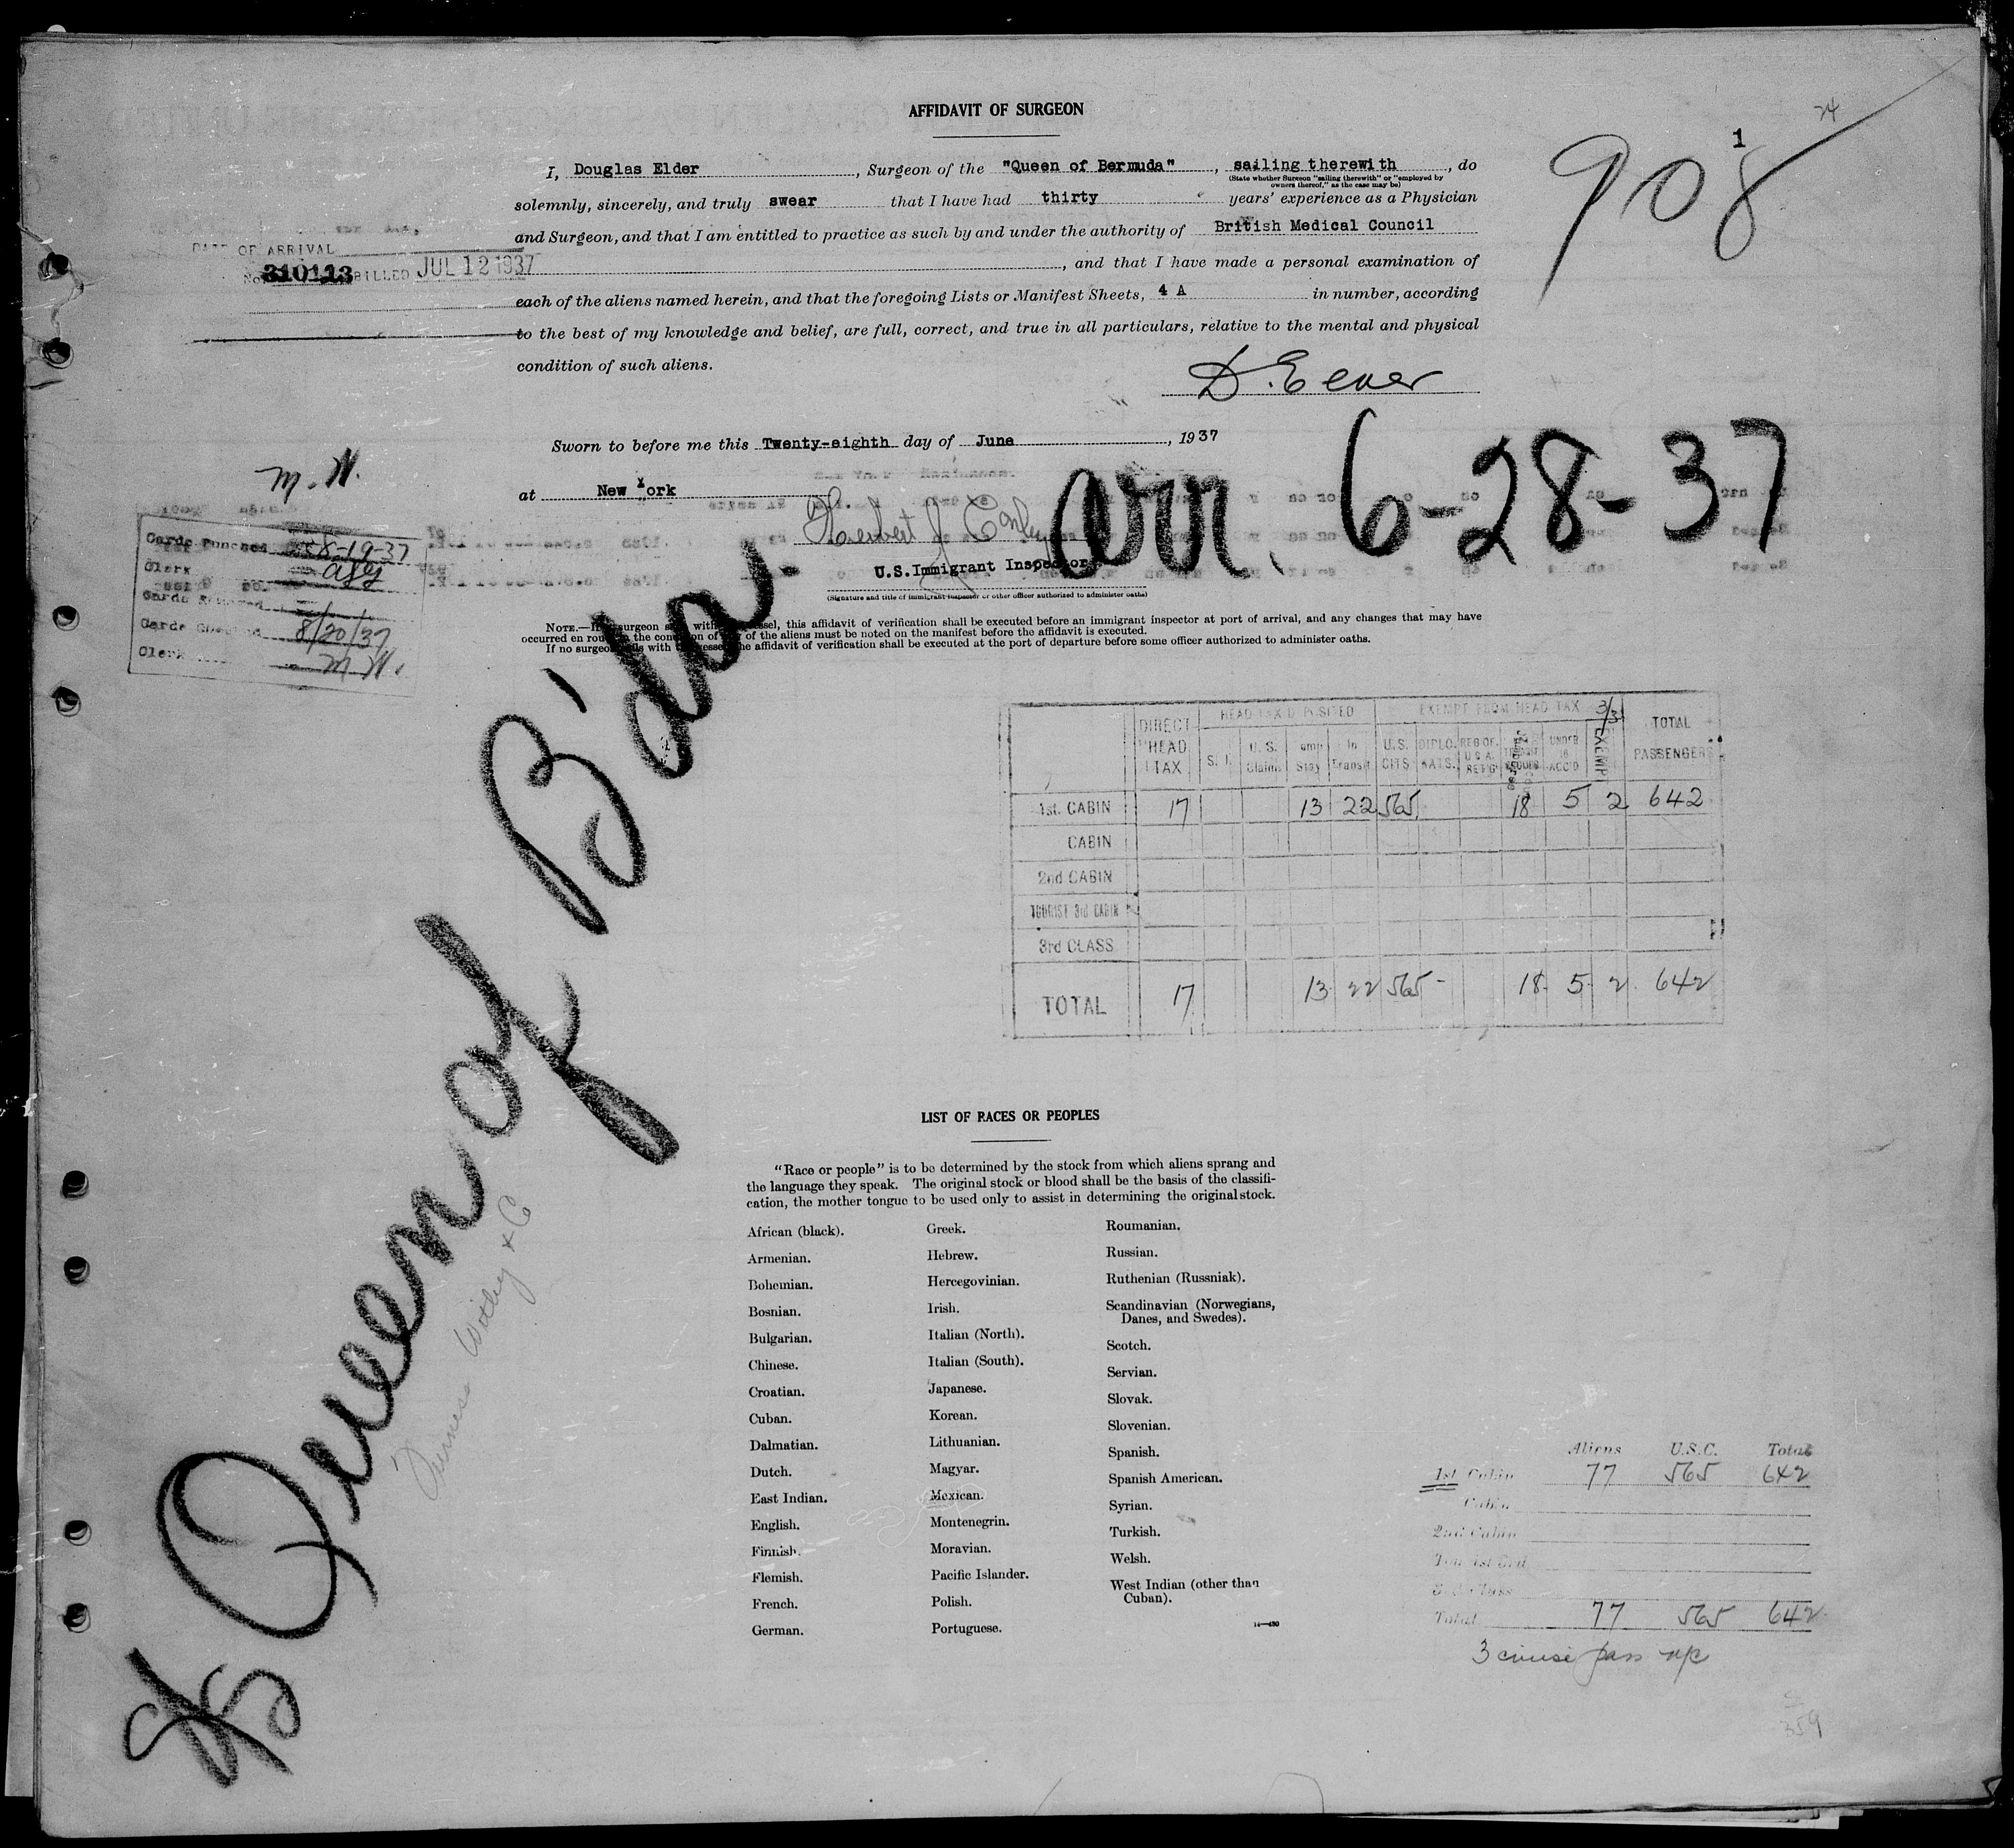 AFFIDAVIT OF SURGEON
24
1
908
I, Douglas Elder, Surgeon of the "Queen of Bermuda", sailing therewith, do
(State whether Surgeon "sailing therewith" or "employed by
owners thereof," as the case may be)
solemnly, sincerely, and truly swear that I have had thirty years' experience as a Physician
and Surgeon, and that I am entitled to practice as such by and under the authority of British Medical Council
DATE OF ARRIVAL
No. 310113 BILLED JUL 12 1937
, and that I have made a personal examination of
each of the aliens named herein, and that the foregoing Lists or Manifest Sheets, 4 A in number, according
to the best of my knowledge and belief, are full, correct, and true in all particulars, relative to the mental and physical
condition of such aliens.
D. Elder
Sworn to before me this Twenty-eighth day of June, 1937
at New York
arr. 6-28-37
Herbert J Conley
U.S. Immigrant Inspector
(Signature and title of immigrant inspector or other officer authorized to administer oaths)
M. W.
Cards Punched 8-19-37
Clerk
Cards
Cards Checked 8/20/37
Clerk M W.
NOTE.—If surgeon with vessel, this affidavit of verification shall be executed before an immigrant inspector at port of arrival, and any changes that may have
occurred en route in the condition of any of the aliens must be noted on the manifest before the affidavit is executed.
If no surgeon sails with the vessel the affidavit of verification shall be executed at the port of departure before some officer authorized to administer oaths.
S/S Queen of B'da.
Furness Withy & Co
DIRECT HEAD TAX
HEAD TAX DEPOSITED
EXEMPT FROM HEAD TAX
3/31
TOTAL PASSENGERS
S. I. U. S. Claims Temp Stay In Transit U.S. CITS DIPLOMATS. RES OF U S A. RET'G UNDER 16 ACC'D EXEMPT
1st. CABIN 17 13 22 565 18 5 2 642
CABIN
2nd CABIN
TOURIST 3rd CABIN
3rd CLASS
TOTAL 17 13 22 565 - 18 5 2 642
LIST OF RACES OR PEOPLES
"Race or people" is to be determined by the stock from which aliens sprang and
the language they speak. The original stock or blood shall be the basis of the classifi-
cation, the mother tongue to be used only to assist in determining the original stock.
African (black).
Armenian.
Bohemian.
Bosnian.
Bulgarian.
Chinese.
Croatian.
Cuban.
Dalmatian.
Dutch.
East Indian.
English.
Finnish.
Flemish.
French.
German.
Greek.
Hebrew.
Hercegovinian.
Irish.
Italian (North).
Italian (South).
Japanese.
Korean.
Lithuanian.
Magyar.
Mexican.
Montenegrin.
Moravian.
Pacific Islander.
Polish.
Portuguese.
Roumanian.
Russian.
Ruthenian (Russniak).
Scandinavian (Norwegians,
Danes, and Swedes).
Scotch.
Servian.
Slovak.
Slovenian.
Spanish.
Spanish American.
Syrian.
Turkish.
Welsh.
West Indian (other than
Cuban).
14—430
Aliens U.S.C. Total
1st Cabin 77 565 642
Cabin
2nd Cabin
Tourist 3rd
3rd Class
Total 77 565 642
3 cruise pass
359